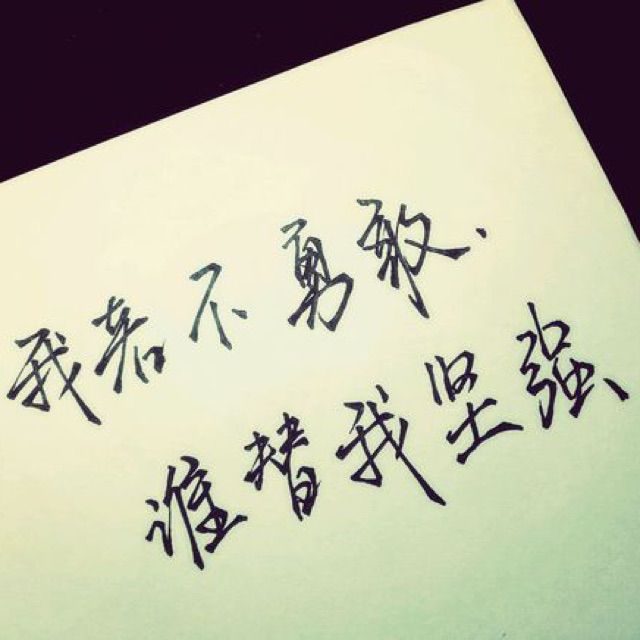 我若不勇敢.
谁替我坚强、